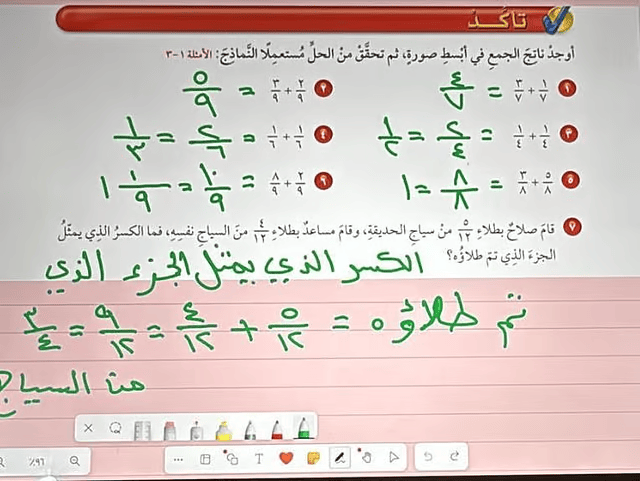 تأكد
أوجدُ ناتجَ الجمعِ في أبْسطِ صورةٍ، ثم تحقَّقْ منَ الحلِّ مُستعمِلًا النَّماذجَ: الأمثلة ١-٣
١ ١/٧ + ٣/٧ = ٤/٧
٢ ٢/٩ + ٣/٩ = ٥/٩
٣ ١/٤ + ١/٤ = ٢/٤ = ١/٢
٤ ١/٦ + ١/٦ = ٢/٦ = ١/٣
٥ ٥/٨ + ٣/٨ = ٨/٨ = ١
٦ ٢/٩ + ٨/٩ = ١٠/٩ = ١ ١/٩
٧ قامَ صلاحٌ بطلاءِ ٥/١٢ منْ سياجِ الحديقةِ، وقامَ مساعدٌ بطلاءِ ٤/١٢ منَ السياجِ نفسِهِ، فما الكسرُ الذي يمثِّلُ
الجزءَ الذي تمَّ طلاؤُه؟
الكسر الذي يمثل الجزء الذي
تم طلاؤه = ٥/١٢ + ٤/١٢ = ٩/١٢ = ٣/٤
من السياج
٪٩٦
T